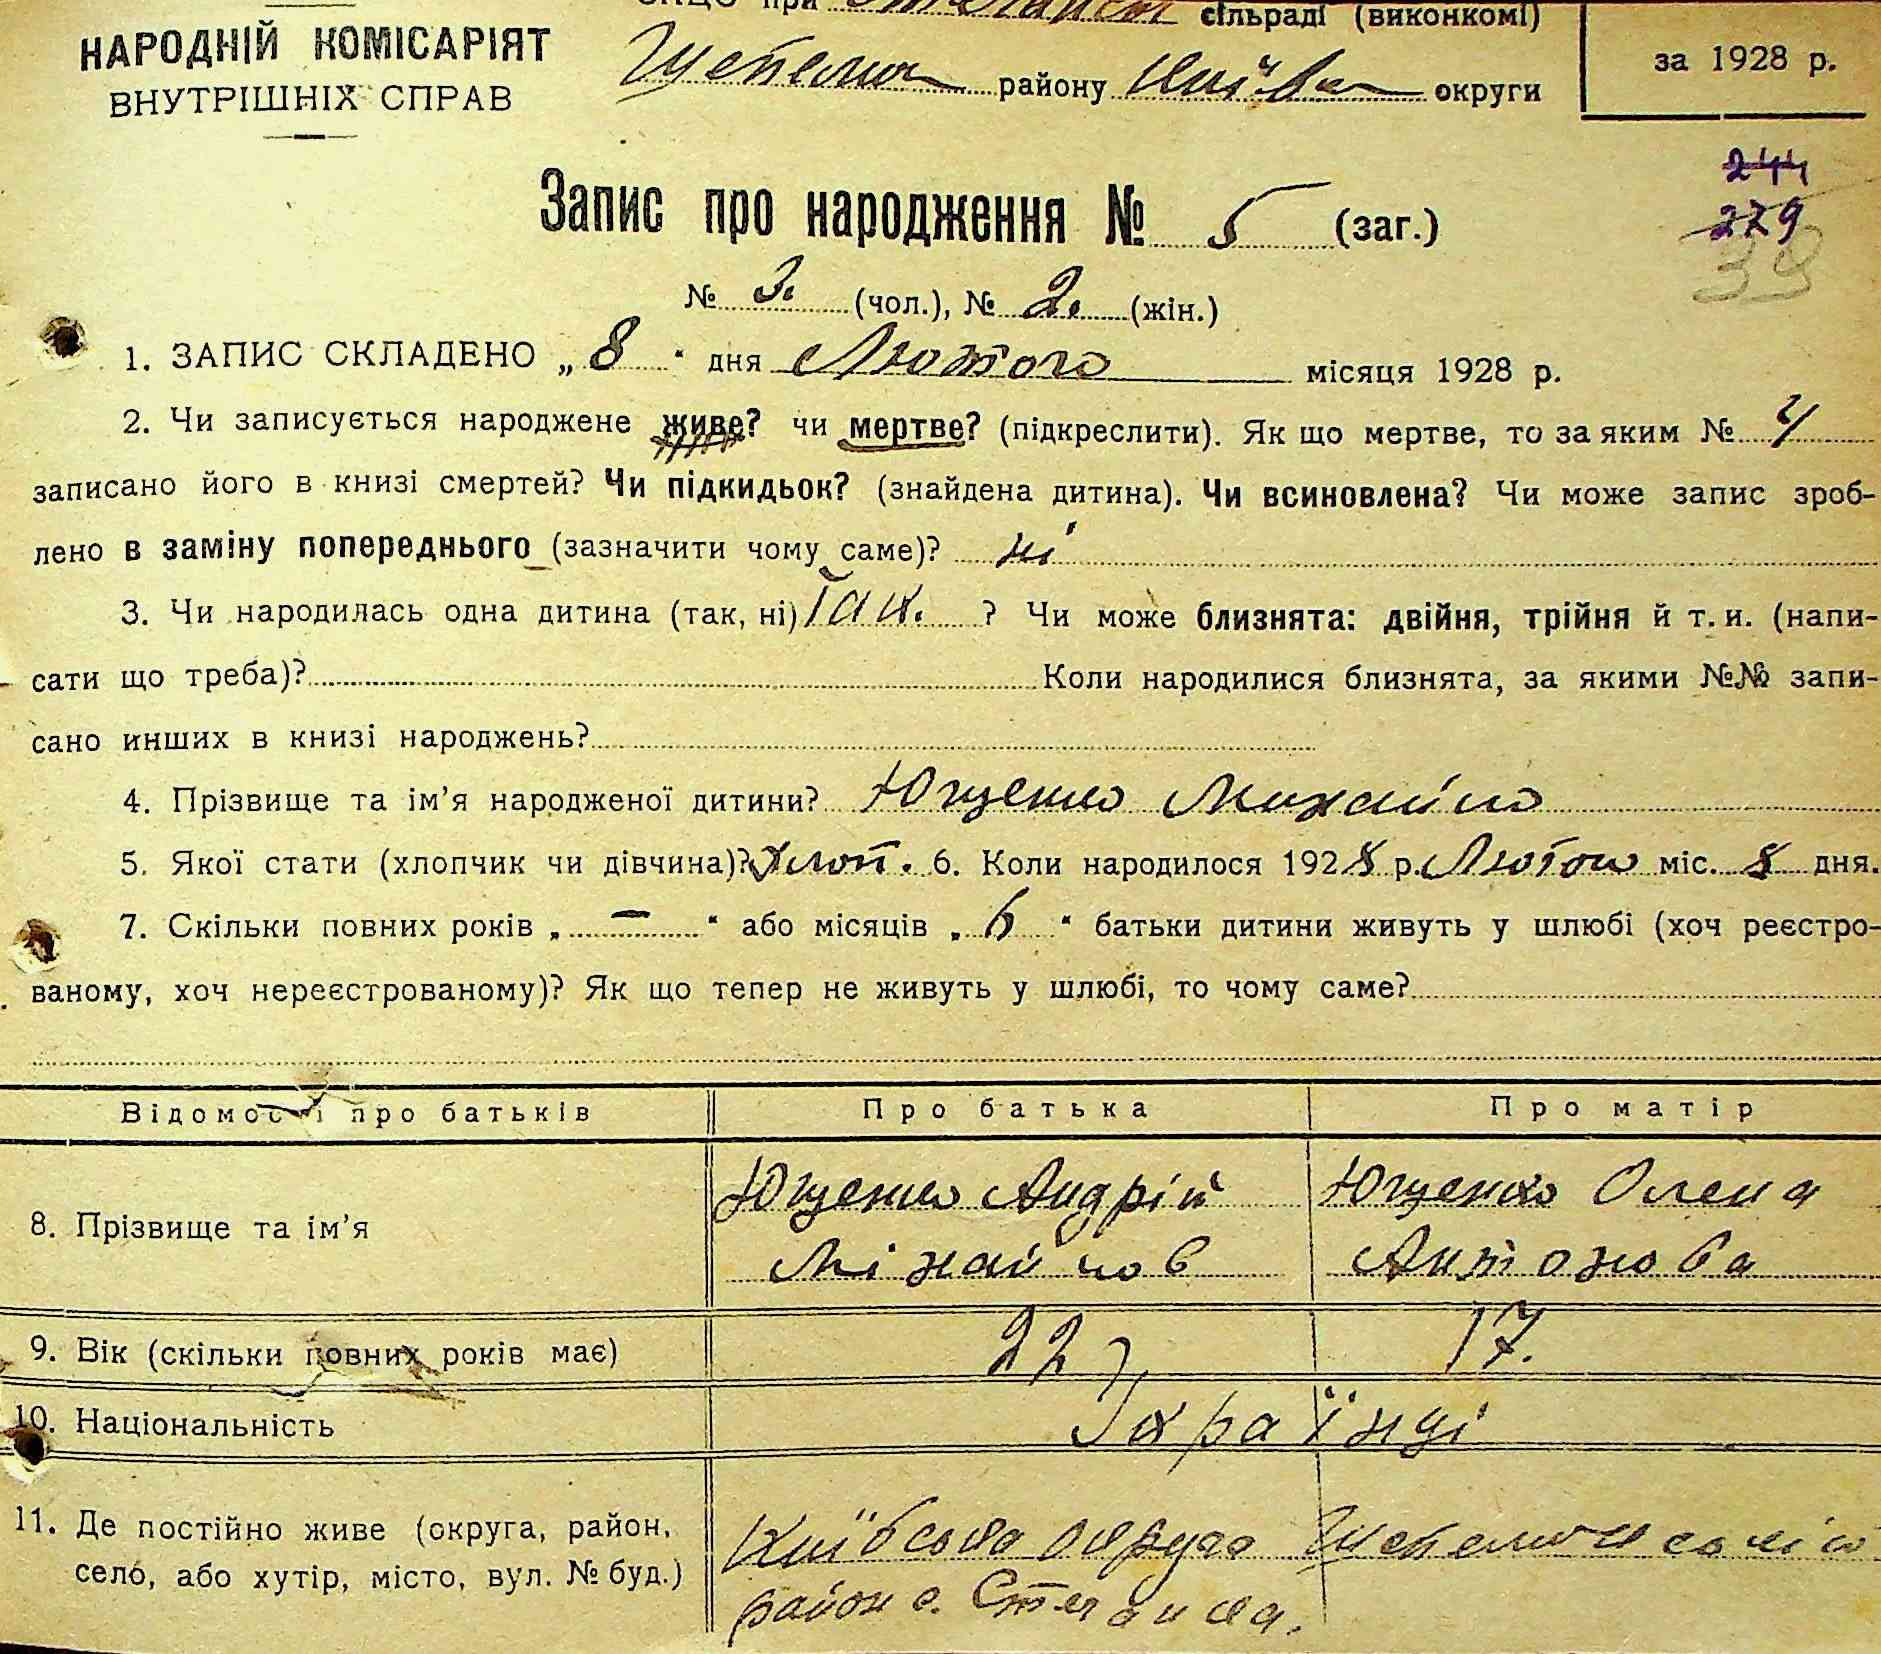 при сільраді (виконкомі)
НАРОДНІЙ КОМІСАРІЯТ
ВНУТРІШНІХ СПРАВ
району округи
за 1928 р.
244
279
39
Запис про народження № 5 (заг.)
№ 3. (чол.), № 2. (жін.)
1. ЗАПИС СКЛАДЕНО „ 8 “ дня Лютого місяця 1928 р.
2. Чи записується народжене живе? чи мертве? (підкреслити). Як що мертве, то за яким № 4
записано його в книзі смертей? Чи підкидьок? (знайдена дитина). Чи всиновлена? Чи може запис зроб-
лено в заміну попереднього (зазначити чому саме)? ні
3. Чи народилась одна дитина (так, ні) Так. ? Чи може близнята: двійня, трійня й т. и. (напи-
сати що треба)? Коли народилися близнята, за якими №№ запи-
сано инших в книзі народжень?
4. Прізвище та ім’я народженої дитини? Ющенко Михайло
5. Якої стати (хлопчик чи дівчина)? Хлоп. 6. Коли народилося 1928 р. Лютого міс. 8 дня.
7. Скільки повних років „ — “ або місяців „ 6 “ батьки дитини живуть у шлюбі (хоч реєстро-
ваному, хоч нереєстрованому)? Як що тепер не живуть у шлюбі, то чому саме?
Відомості про батьків Про батька Про матір
8. Прізвище та ім’я Ющенко Андрій Міхайлов Ющенко Олена Антонова
9. Вік (скільки повних років має) 22 17.
10. Національність Українці
11. Де постійно живе (округа, район, Київська округа
село, або хутір, місто, вул. № буд.) район с.